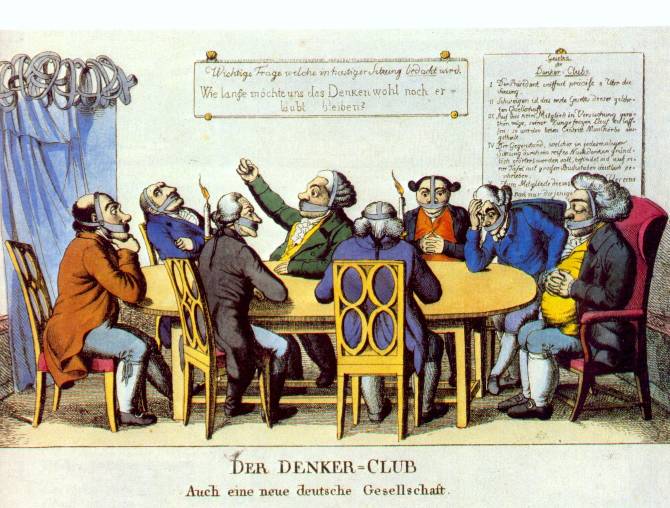 Wichtige Frage welche in heutiger Sitzung bedacht wird.
Wie lange möchte uns das Denken wohl noch er=
laubt bleiben?
Gesetze
des
Denker-Clubs
I. Der Präsident eröffnet präcise 8 Uhr die
Sitzung.
II. Schweigen ist das erste Gesetz dieser gelehr-
ten Gesellschaft.
III. Auf dass kein Mitglied in Versuchung gera-
then möge, seiner Zunge freyen Lauf zu las-
sen: so werden beim Eintritt Maulkörbe aus-
getheilt.
IV. Der Gegenstand, welcher in jedesmaliger
Sitzung durch ein reifes Nachdenken gründ-
lich erörtert werden soll, befindet sich auf ei-
ner Tafel mit grossen Buchstaben deutlich ge-
schrieben.
DER DENKER=CLUB
Auch eine neue deutsche Gesellschaft.